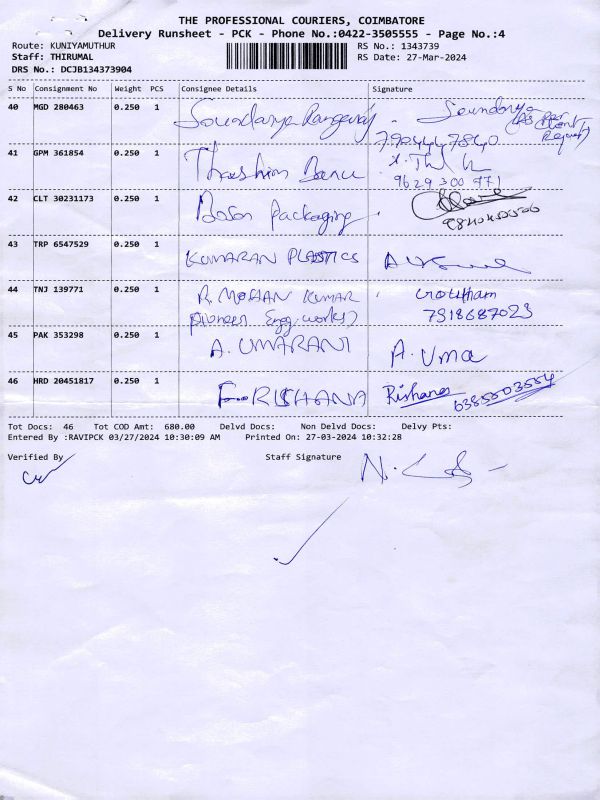 THE PROFESSIONAL COURIERS, COIMBATORE
Delivery Runsheet - PCK - Phone No.:0422-3505555 - Page No.:4
Route: KUNIYAMUTHUR RS No.: 1343739
Staff: THIRUMAL RS Date: 27-Mar-2024
DRS No.: DCJB134373904
S No Consignment No Weight PCS Consignee Details Signature
40 MGD 280463 0.250 1 Soundarya Rangaraj Soundarya
7904447840
41 GPM 361854 0.250 1 Thashim Banu
9629300771
42 CLT 30231173 0.250 1 Packaging
43 TRP 6547529 0.250 1 KUMARAN PLASTICS
44 TNJ 139771 0.250 1 R. MOHAN KUMAR Goutham
Pioneer Engg works) 7318687023
45 PAK 353298 0.250 1 A. UMARANI A. Uma
46 HRD 20451817 0.250 1 F. RISHANA Rishana 6385503554
Tot Docs: 46 Tot COD Amt: 680.00 Delvd Docs: Non Delvd Docs: Delvy Pts:
Entered By :RAVIPCK 03/27/2024 10:30:09 AM Printed On: 27-03-2024 10:32:28
Verified By Staff Signature